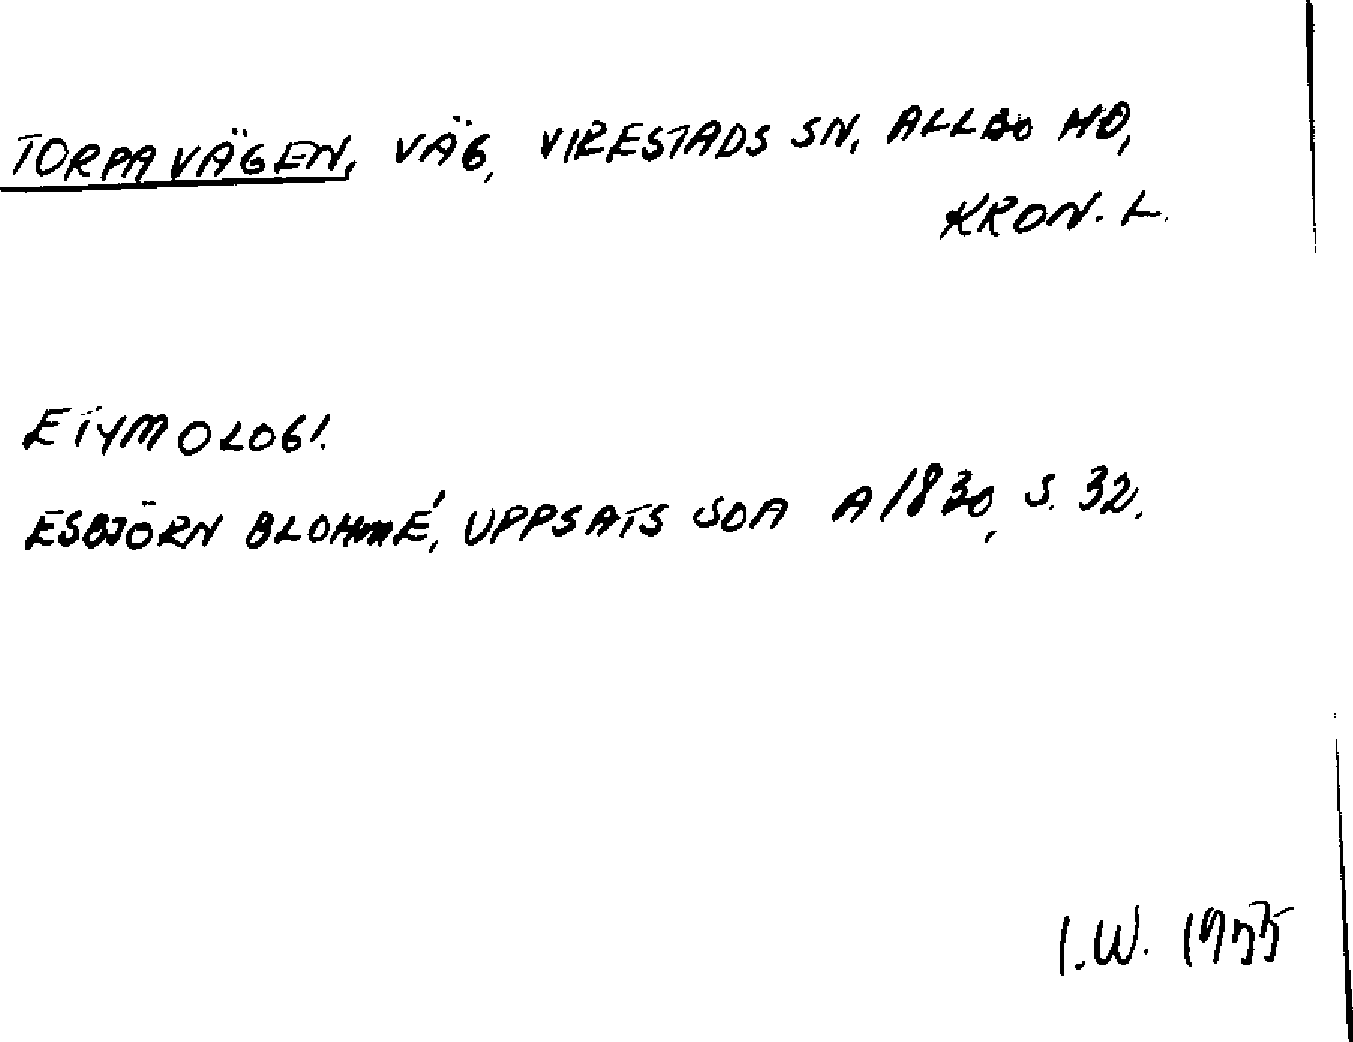 TORPAVÄGEN, VÄG, VIRESTADS SN, ALLBO HD,
KRON. L.
ETYMOLOGI.
ESBJÖRN BLOHMÉ, UPPSATS SOA A 1830, S. 32.
I.W.